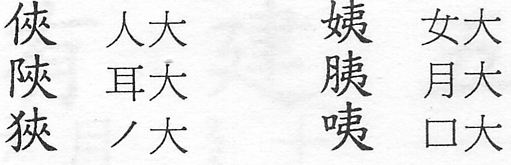 俠 人大 姨 女大
陝 耳大 胰 月大
狹 ノ大 咦 口大